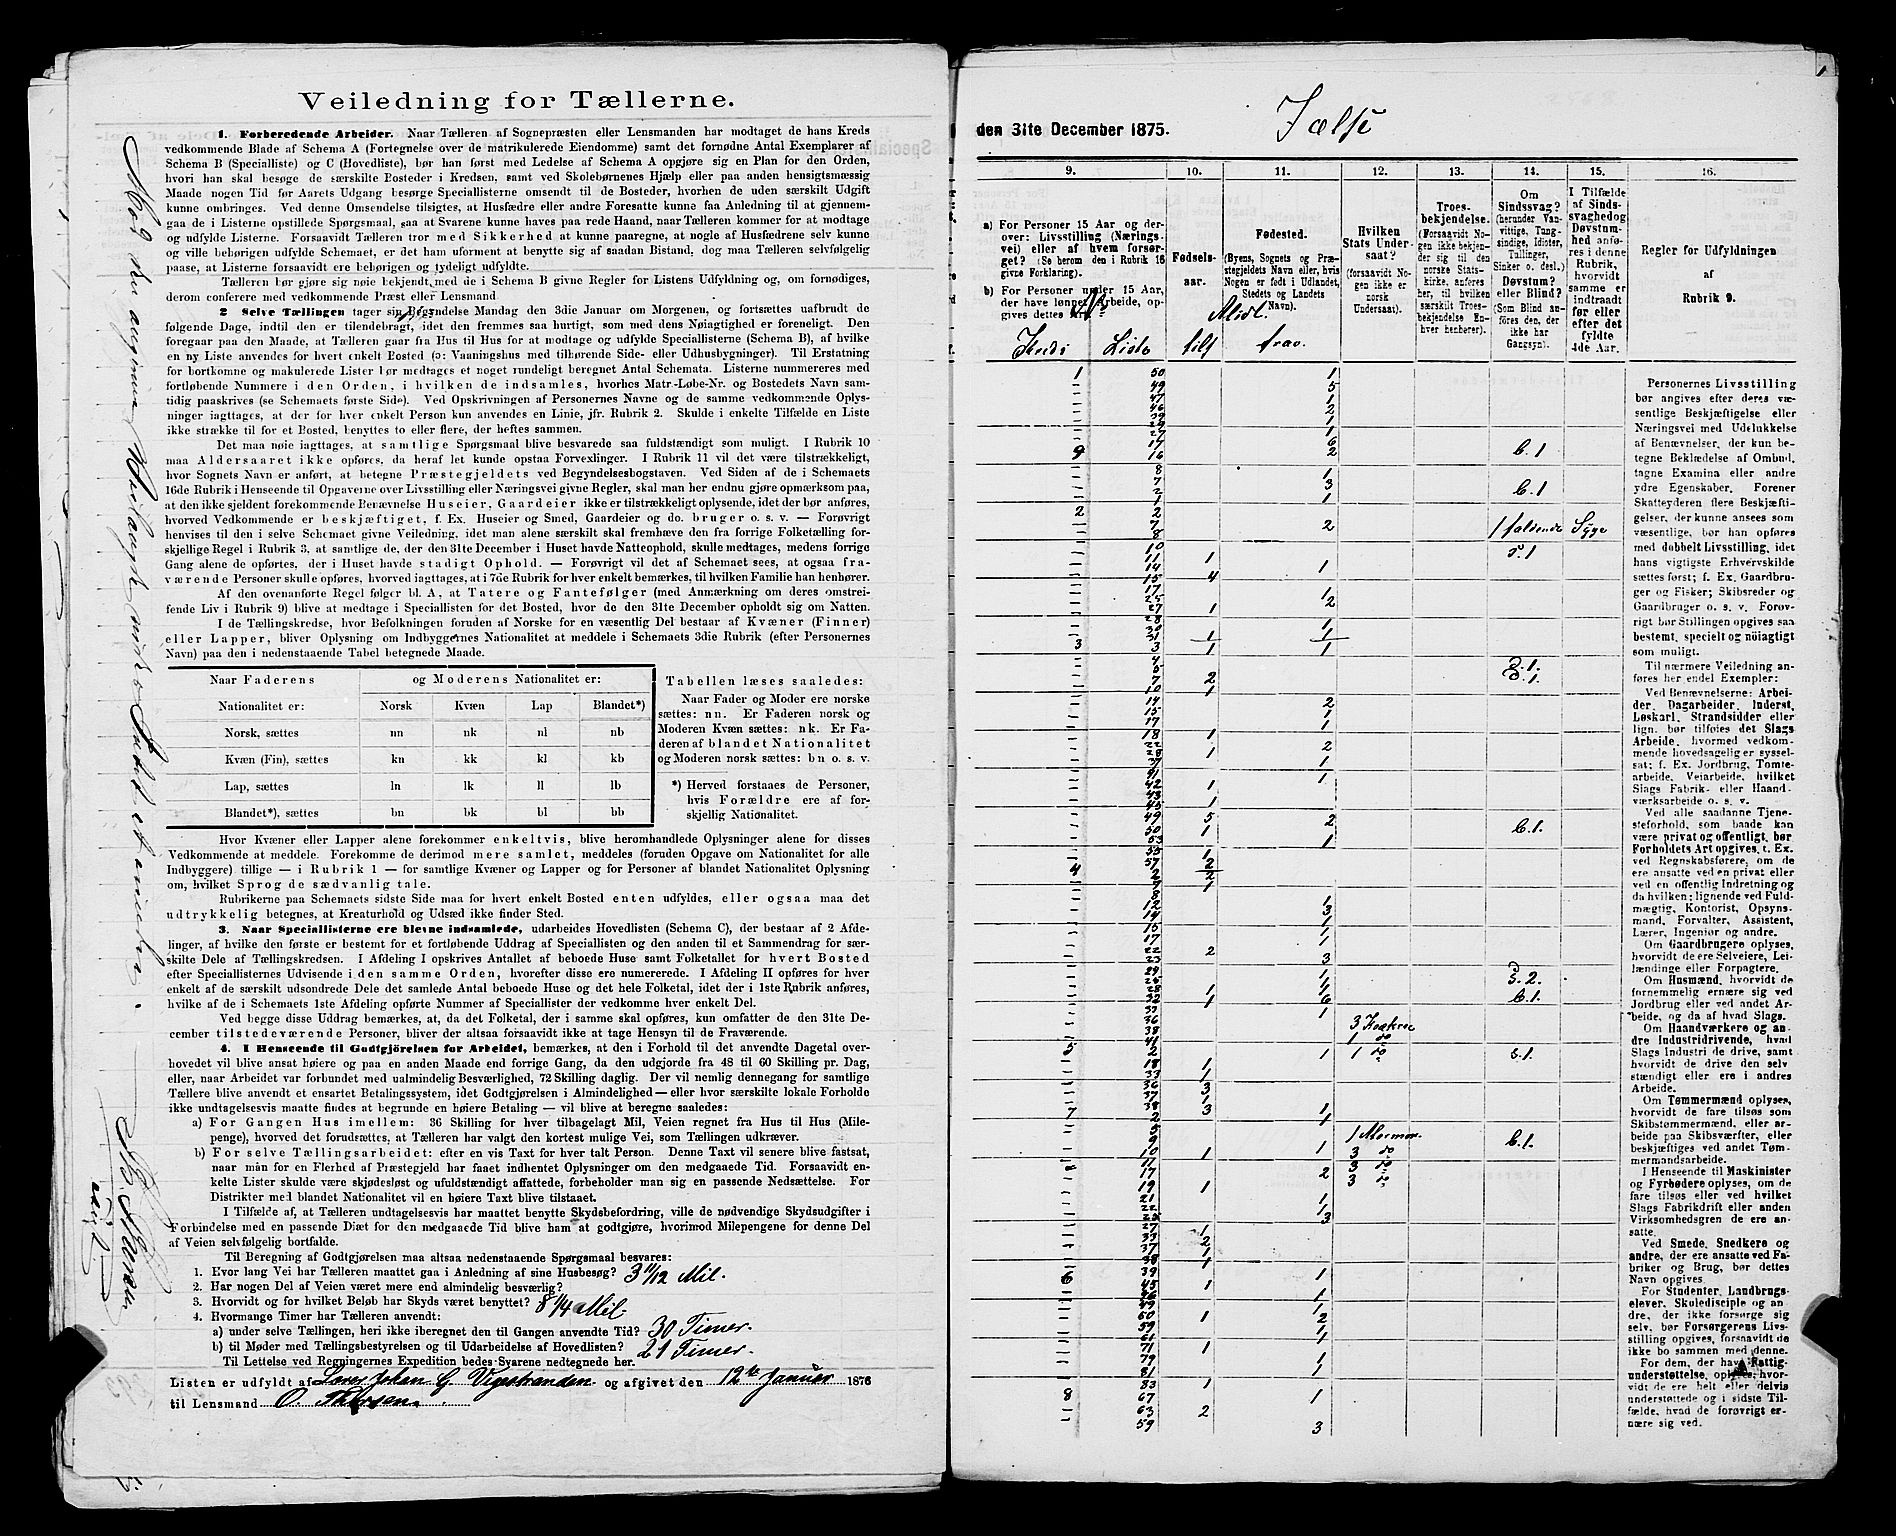 Veiledning for Tællerne.
1. Forberedende Arbeider. Naar Tælleren af Sognepræsten eller Lensmanden har modtaget de hans Kreds
vedkommende Blade af Schema A (Fortegnelse over de matrikulerede Eiendomme) samt det fornødne Antal Exemplarer af
Schema B (Specialliste) og C (Hovedliste), bør han først med Ledelse af Schema A opgjøre sig en Plan for den Orden,
hvori han skal besøge de særskilte Bosteder i Kredsen, samt ved Skolebørnenes Hjælp eller paa anden hensigtsmæssig
Maade nogen Tid før Aarets Udgang besørge Speciallisterne omsendt til de Bosteder, hvorhen de uden særskilt Udgift
kunne ombringes. Ved denne Omsendelse tilsigtes, at Husfædre eller andre Foresatte kunne faa Anledning til at gjennem-
gaa de i Listerne opstillede Spørgsmaal, saa at Svarene kunne haves paa rede Haand, naar Tælleren kommer for at modtage
og udfylde Listerne. Forsaavidt Tælleren tror med Sikkerhed at kunne paaregne, at nogle af Husfædrene selv kunne
og ville behørigen udfylde Schemaet, er det ham uforment at benytte sig af saadan Bistand, dog maa Tælleren selvfølgelig
paase, at Listerne forsaavidt ere behørigen og tydeligt udfyldte.
Tælleren bør gjøre sig nøie bekjendt med de i Schema B givne Regler for Listens Udfyldning og, om fornødiges,
derom conferere med vedkommende Præst eller Lensmand.
2 Selve Tællingen tager sin Begyndelse Mandag den 3die Januar om Morgenen, og fortsættes uafbrudt de
følgende Dage, indtil den er tilendebragt, idet den fremmes saa hurtigt, som med dens Nøiagtighed er foreneligt. Den
foregaar paa den Maade, at Tælleren gaar fra Hus til Hus for at modtage og udfylde Speciallisterne (Schema B), af hvilke
en ny Liste anvendes for hvert enkelt Bosted (ɔ: Vaaningshus med tilhørende Side- eller Udhusbygninger). Til Erstatning
for bortkomne og makulerede Lister bør medtages et noget rundeligt beregnet Antal Schemata. Listerne nummereres med
fortløbende Nummere i den Orden, i hvilken de indsamles, hvorhos Matr.-Løbe-Nr. og Bostedets Navn sam-
tidig paaskrives (se Schemaets første Side). Ved Opskrivningen af Personernes Navne og de samme vedkommende Oplys-
ninger iagttages, at der for hver enkelt Person kun anvendes en Linie, jfr. Rubrik 2. Skulde i enkelte Tilfælde en Liste
ikke strække til for et Bosted, benyttes to eller flere, der heftes sammen.
Det maa nøie iagttages, at samtlige Spørgsmaal blive besvarede saa fuldstændigt som muligt. I Rubrik 10
maa Aldersaaret ikke opføres, da heraf let kunde opstaa Forvexlinger. I Rubrik 11 vil det være tilstrækkeligt,
hvor Sognets Navn er anført, at betegne Præstegjeldets ved Begyndelsesbogstaven. Ved Siden af de i Schemaets
16de Rubrik i Henseende til Opgaverne over Livsstilling eller Næringsvei givne Regler, skal man her endnu gjøre opmærksom paa,
at den ikke sjeldent forekommende Benævnelse Huseier, Gaardeier ikke er tilstrækkeligt oplysende, idet der bør anføres,
hvorved Vedkommende er beskjæftiget, f. Ex. Huseier og Smed, Gaardeier og do. bruger o. s. v. — Forøvrigt
henvises til den i selve Schemaet givne Veiledning, idet man alene særskilt skal fremhæve den fra forrige Folketælling for-
skjellige Regel i Rubrik 3, at samtlige de, der den 31te December i Huset havde Natteophold, skulle medtages, medens forrige
Gang alene de opførtes, der i Huset havde stadigt Ophold. — Forøvrigt vil det af Schemaet sees, at ogsaa fra-
værende Personer skulle opføres, hvorved iagttages, at i 7de Rubrik for hver enkelt bemærkes, til hvilken Familie han henhører.
Af den ovenanførte Regel følger bl. A., at Tatere og Fantefølger (med Anmærkning om deres omstrei-
fende Liv i Rubrik 9) blive at medtage i Speciallisten for det Bosted, hvor de den 31te December opholdt sig om Natten.
I de Tællingskredse, hvor Befolkningen foruden af Norske for en væsentlig Del bestaar af Kvæner (Finner)
eller Lapper, bliver Oplysning om Indbyggernes Nationalitet at meddele i Schemaets 3die Rubrik (efter Personernes
Navn) paa den i nedenstaaende Tabel betegnede Maade.
Naar Faderens og Moderens Nationalitet er:
Nationalitet er: Norsk Kvæn Lap Blandet*)
Norsk, sættes nn nk nl nb
Kvæn (Fin), sættes kn kk kl kb
Lap, sættes ln lk ll lb
Blandet*), sættes bn bk bl bb
Tabellen læses saaledes:
Naar Fader og Moder ere norske
sættes: nn. Er Faderen norsk og
Moderen Kvæn sættes: nk. Er Fa-
deren af blandet Nationalitet
og Moderen norsk sættes: bn o. s. v.
*) Herved forstaaes de Personer,
hvis Forældre ere af for-
skjellig Nationalitet.
Hvor Kvæner eller Lapper alene forekommer enkeltvis, blive heromhandlede Oplysninger alene for disses
Vedkommende at meddele. Forekomme de derimod mere samlet, meddeles (foruden Opgave om Nationalitet for alle
Indbyggere) tillige — i Rubrik 1 — for samtlige Kvæner og Lapper og for Personer af blandet Nationalitet Oplysning
om, hvilket Sprog de sædvanlig tale.
Rubrikerne paa Schemaets sidste Side maa for hvert enkelt Bosted enten udfyldes, eller ogsaa maa det
udtrykkelig betegnes, at Kreaturhold og Udsæd ikke finder Sted.
3. Naar Speciallisterne ere blevne indsamlede, udarbeides Hovedlisten (Schema C), der bestaar af 2 Afde-
linger, af hvilke den første er bestemt for et fortløbende Uddrag af Speciallisten og den anden til et Sammendrag for sær-
skilte Dele af Tællingskredsen. I Afdeling I opskrives Antallet af beboede Huse samt Folketallet for hvert Bosted
efter Speciallisternes Udvisende i den samme Orden, hvorefter disse ere numererede. I Afdeling II opføres for hver
enkelt af de særskilt udsondrede Dele det samlede Antal beboede Huse og det hele Folketal, idet der i 1ste Rubrik anføres,
hvilke af de i Schemaets 1ste Afdeling opførte Nummer af Speciallister der vedkomme hver enkelt Del.
Ved begge disse Uddrag bemærkes, at, da det Folketal, der i samme skal opføres, kun omfatter den 31te De-
cember tilstedeværende Personer, bliver der altsaa forsaavidt ikke at tage Hensyn til de Fraværende.
4. I Henseende til Godtgjörelsen for Arbeidet, bemærkes, at den i Forhold til det anvendte Dagetal over-
hovedet vil blive ansat høiere og paa en anden Maade end forrige Gang, da den udgjorde fra 48 til 60 Skilling pr. Dag,
eller, naar Arbeidet var forbundet med ualmindelig Besværlighed, 72 Skilling daglig. Der vil nemlig dennegang for samtlige
Tællere blive anvendt et ensartet Betalingssystem, idet Godtgjörelsen i Almindelighed — eller hvor særskilte lokale Forholde
ikke undtagelsesvis maatte findes at begrunde en høiere Betaling — vil blive at beregne saaledes:
a) For Gangen Hus imellem: 36 Skilling for hver tilbagelagt Mil, Veien regnet fra Hus til Hus (Mile-
penge), hvorved det forudsættes, at Tælleren har valgt den kortest mulige Vei, som Tællingen udkræver.
b) For selve Tællingsarbeidet: efter en vis Taxt for hver talt Person. Denne Taxt vil senere blive fastsat,
naar man for en Flerhed af Præstegjeld har faaet indhentet Oplysninger om den medgaaede Tid. Forsaavidt en-
kelte Lister skulde være skjødesløst og ufuldstændigt affattede, forbeholder man sig en passende Nedsættelse. For
Distrikter med blandet Nationalitet vil en høiere Taxt blive tilstaaet.
I Tilfælde af, at Tælleren undtagelsesvis har maattet benytte Skydsbefordring, ville de nødvendige Skydsudgifter i
Forbindelse med en passende Diæt for den medgaaede Tid blive ham at godtgjøre, hvorimod Milepengene for denne Del
af Veien selvfølgelig bortfalde.
Til Beregning af Godtgjörelsen maa altsaa nedenstaaende Spørgsmaal besvares:
1. Kvor lang Vei har Tælleren maattet gaa i Anledning af sine Husbesøg? 3 11/12 Mil.
2. Har nogen Del af Veien været mere end almindelig besværlig?
3. Hvorvidt og for hvilket Beløb har Skyds været benyttet? 8 1/4 Mil
4. Hvormange Timer har Tælleren anvendt:
a) under selve Tællingen, heri ikke iberegnet den til Gangen anvendte Tid? 30 Timer.
b) til Møder med Tællingsbestyrelsen og til Udarbeidelse af Hovedlisten? 21 Timer.
Til Lettelse ved Regningernes Expedition bedes Svarene nedtegnede her.
Listen er udfyldt af Johan G. Vigestranden og afgivet den 12te Januar 1876
til Lensmand O.
den 31te December 1875. Jælse
9. 10. 11. 12. 13. 14. 15. 16.
a) For Personer 15 Aar og der-
over: Livsstilling (Nærings-
vei) eller af hvem forsør-
get? (Se herom den i Rubrik 16
givne Forklaring).
b) For Personer under 15 Aar,
der have lønnet Arbeide, op-
gives dettes Art.
Fødsels-
aar.
Fødested.
(Byens, Sognets og Præ-
stegjeldets Navn eller, hvis
Nogen er født i Udlandet,
Stedets og Landets
Navn).
Hvilken
Stats Under-
saat?
(forsaavidt No-
gen ikke er
norsk
Undersaat).
Troes-
bekjendelse.
(Forsaavidt No-
gen ikke bekjen-
der sig til den
norske Stats-
kirke, anføres
her, til hvilken
særskilt Troes-
bekjendelse En-
hver henhører).
Om
Sindssvag?
(herunder Van-
vittige, Tung-
sindige, Idioter,
Tullinger,
Sinker o. desl.)
Døvstum?
eller Blind?
(Som Blind an-
føres den, der
ikke har
Gangsyn).
I Tilfælde
af Sinds-
svaghed og
Døvstum-
hed anfø-
res i denne
Rubrik,
hvorvidt
samme er
indtraadt
før eller
efter det
fyldte
4de Aar.
Regler for Udfyldningen
af
Rubrik 9.
Kreds Liste tilst frav.
Midl.
1 50 1
49 5
47 1
46 2
17 6
9 16 2 b. 1
8 1
7 3
2 b. 1
1 1
2 2
7 2 1 faldende Syge
8
10 d. 1
11 1
14 1
15 4
17
25 1
27 1 2
28
30 1
31 1 1
3 3 1 1
4
5
7 2
10 1
14 2
15 1
17 1
18 1
22 2
28 1
37 1
41 1
42 1
43
45 1
49 5 2 b. 1.
50 1
53 1
55 1
57 2
4 2 2
7 1
8
12 1
14 3
15 1
17 1
22 2
23 3
1
28 1 1
32 1 6 b. 1.
37 1
36 3 Kvækere
38 1 do
41 1 do
5 2 1 s. 1.
18 1
33 1
36 3
37 1
38 3 1
7 2 1
5 1 Mormon
9 3 do b. 1.
10 1 1 3 do
17 2 3 do
19 1
21 1
22 1
3
27 1
33 2
37 1
38 1
39 1
6 45 1
49 1
50 1 2
59 1
61 1
71 1
79 1
81 1
83 1
8 67 1
63 2
59 3
Personernes Livsstilling
bør angives efter deres væ-
sentlige Beskjæftigelse eller
Næringsvei med Udelukkelse
af Benævnelser, der kun be-
tegne Beklædelse af Ombud,
tagne Examina eller andre
ydre Egenskaber. Forener
Skatteyderen flere Beskjæfti-
gelser, der kunne ansees som
væsentlige, bør han opføres
med dobbelt Livsstilling, idet
hans vigtigste Erhvervskilde
sættes først; f. Ex. Gaardbru-
ger og Fisker; Skibsreder og
Gaardbruger o. s. v. Forøv-
rigt bør Stillingen opgives saa
bestemt, specielt og nöiagtigt
som muligt.
Til nærmere Veiledning an-
føres her endel Exempler:
Ved Benævnelserne: Arbei-
der, Dagarbeider, Inderst,
Løskarl, Strandsidder eller
lign. bør tilføies det Slags
Arbeide, hvormed vedkom-
mende hovedsagelig er syssel-
sat; f. Ex. Jordbrug, Tomte-
arbeide, Veiarbeide, hvilket
Slags Fabrik- eller Haand-
værksarbeide o. s. v.
Ved alle saadanne Tjene-
steforhold, som baade kan
være privat og offentligt, bør
Forholdets Art opgives, f. Ex.
ved Regnskabsførere, om de
ere ansatte ved en privat eller
ved en offentlig Indretning og
da hvilken; lignende ved Fuld-
mægtig, Kontorist, Opsyns-
mand, Forvalter, Assistent,
Lærer, Ingeniør og andre.
Om Gaardbrugere oplyses,
hvorvidt de ere Selveiere, Lei-
lændinge eller Forpagtere.
Om Husmænd, hvorvidt de
fornemmelig ernære sig ved
Jordbrug eller ved andet Ar-
beide, og da af hvad Slags.
Om Haandværkere og an-
dre Industridrivende, hvad
Slags Industri de drive, samt
hvorvidt de drive den selv
stændigt eller ere i andres
Arbeide.
Om Tømmermænd oplyses,
hvorvidt de fare tilsøs som
Skibstømmermænd, eller ar-
beide paa Skibsværfter, eller
beskjæftiges ved andet Tøm-
mermandsarbeide.
I Henseende til Maskinister
og Fyrbødere oplyses, om de
fare tilsøs eller ved hvilket
Slags Fabrikdrift eller anden
Virksomhedsgren de ere an-
satte.
Ved Smede, Snedkere og
andre, der ere ansatte ved Fa-
briker og Brug, bør dettes
Navn opgives.
For Studenter, Landbrugs-
elever, Skoledisciple og an-
dre, der ikke forsørge sig
selv, bør Forsørgerens Livs-
stilling opgives, forsaavidt de
ikke bo sammen med denne.
For dem, der have Fattig-
understøttelse, oplyses, hvor-
vidt de ere helt eller delvis
understøttede og i sidste Til-
fælde, hvad de forøvrigt er-
nære sig ved.